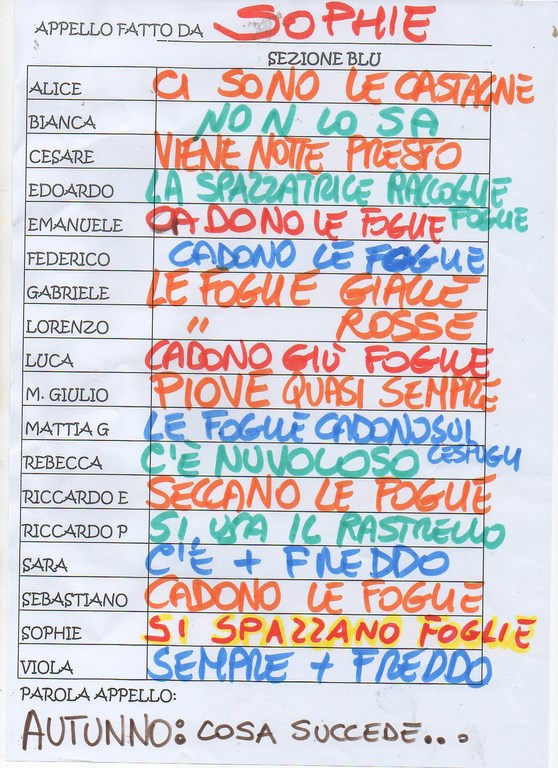 APPELLO FATTO DA SOPHIE
SEZIONE BLU
ALICE CI SONO LE CASTAGNE
BIANCA NON LO SA
CESARE VIENE NOTTE PRESTO
EDOARDO LA SPAZZATRICE RACCOGLIE FOGLIE
EMANUELE CADONO LE FOGLIE
FEDERICO CADONO LE FOGLIE
GABRIELE LE FOGLIE GIALLE
LORENZO " ROSSE
LUCA CADONO GIÙ FOGLIE
M. GIULIO PIOVE QUASI SEMPRE
MATTIA G LE FOGLIE CADONO SUI CESPUGLI
REBECCA C'È NUVOLOSO
RICCARDO E SECCANO LE FOGLIE
RICCARDO P SI USA IL RASTRELLO
SARA C'È + FREDDO
SEBASTIANO CADONO LE FOGLIE
SOPHIE SI SPAZZANO FOGLIE
VIOLA SEMPRE + FREDDO
PAROLA APPELLO:
AUTUNNO: COSA SUCCEDE...